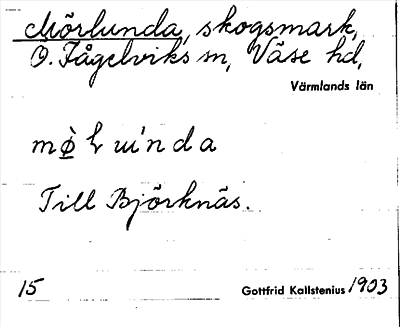 Mörlunda, skogsmark,
Ö. Fågelviks sn, Väse hd,
Värmlands län
Till Björknäs.
15
Gottfrid Kallstenius 1903